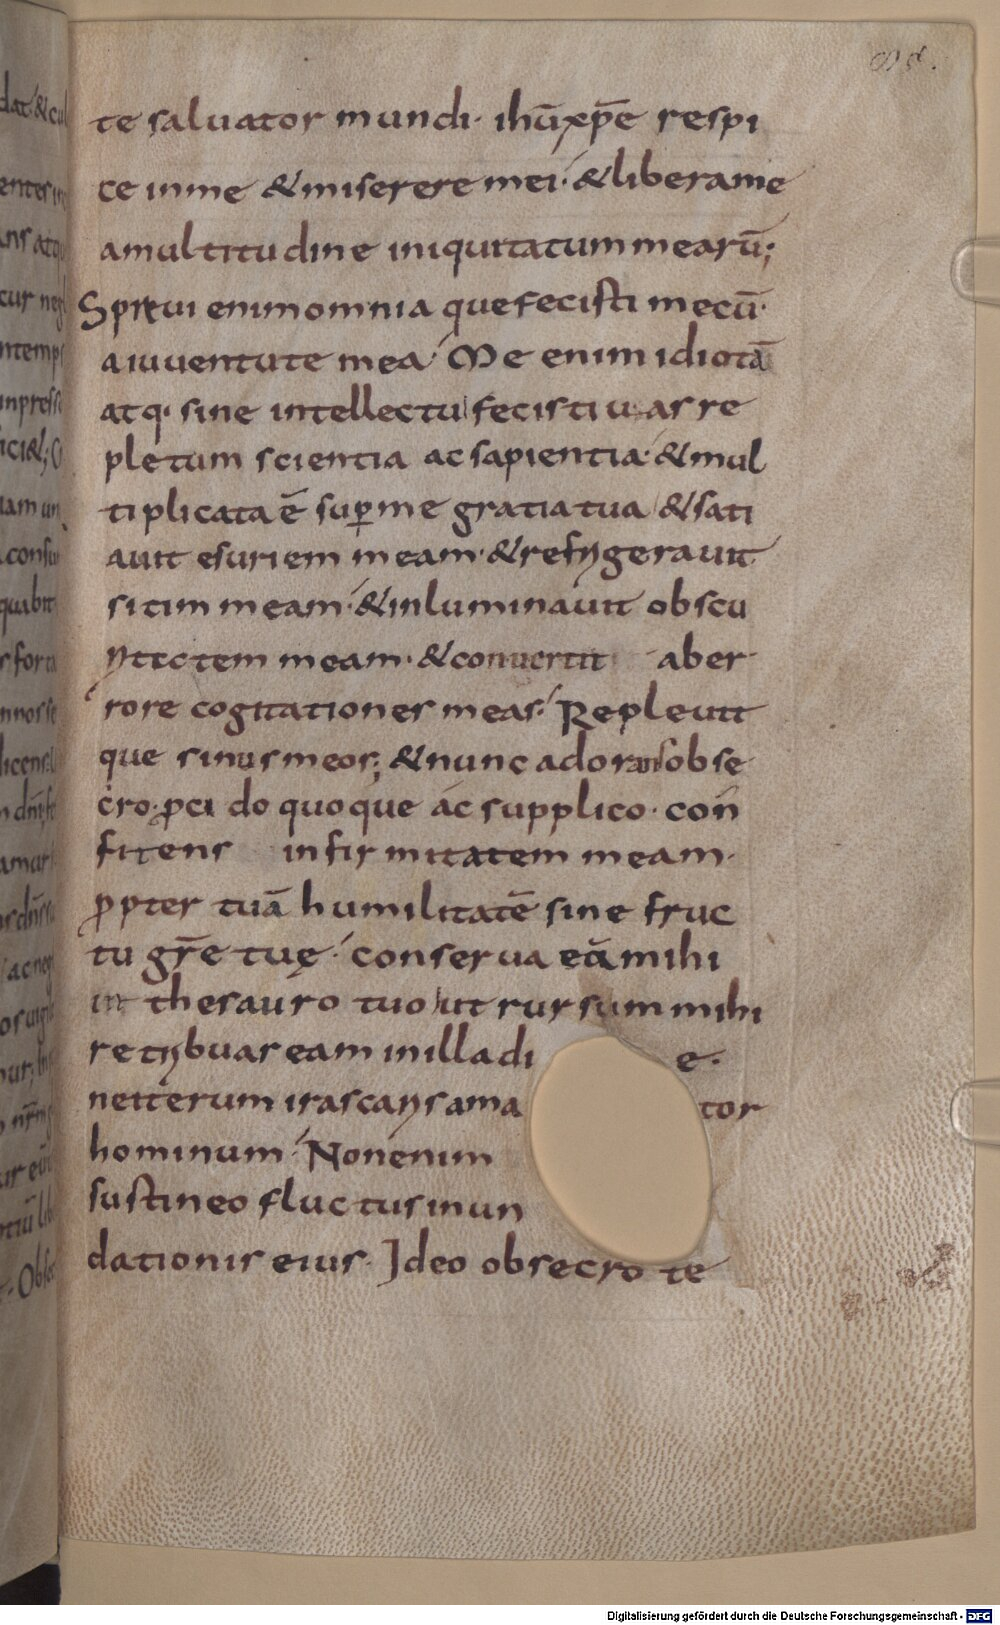 te salvator mundi· ihūxp̄e respi
ce inme &miserere mei· &liberame
amultitudine iniquitatum mearū;
Sprevi enim omnia que fecisti mecū·
aiuuentute mea· Me enim idiotā
atq· sine intellectu fecisti uas re
pletum scientia ac sapientia· &mul
tiplicata ē sup me gratia tua &sati
auit esuriem meam· &refrigerauit
sitim meam· &inluminauit obscu
ritatem meam· &conuertit aber
rore cogitationes meas· Repleuit
que sinus meos; &nunc adorans obse
cro· pci do quoque ac supplico· con
fitens infirmitatem meam·
ppter tuā humilitatē sine fruc
tu gr̄e tuę· conserua eā mihi
in thesauro tuo ut rursum mihi
retribuas eam in illa di e·
neiterum irascaris ama tor
hominum· Non enim
sustineo fluctus inun
dationis eius· Ideo obsecro te
Digitalisierung gefördert durch die Deutsche Forschungsgemeinschaft - DFG